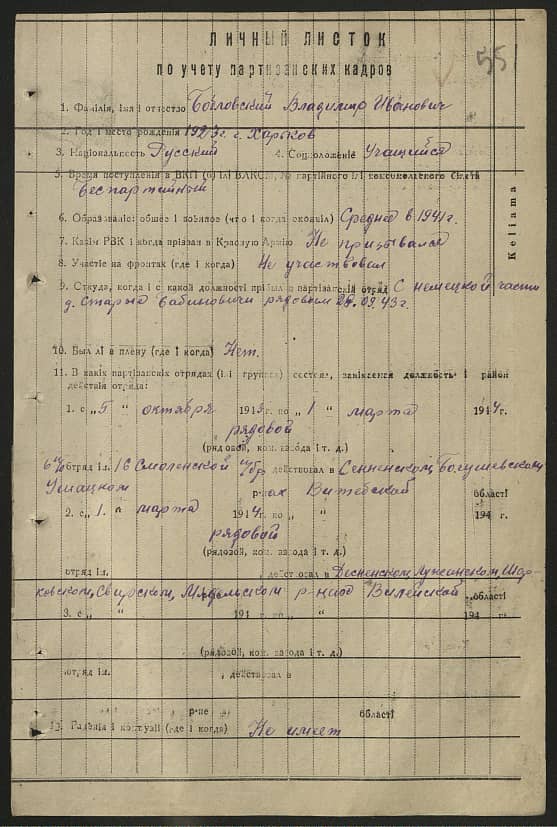 55
ЛИЧНЫЙ ЛИСТОК
по учету партизанских кадров
1. Фамілія, імя і отчество Богловский Владимир Иванович
2. Год і место рождения 1923 г. г. Харьков
3. Національность Русский 4. Соцположение Учащийся
5. Время поступления в ВКП (б) ілі ВЛКСМ, № партійного ілі комсомольского білета
Беспартийный
6. Образованіе: общее і военное (что і когда окончіл) Среднее в 1941 г.
7. Какім РВК і когда прізван в Красную Армію Не призывался
8. Участіе на фронтах (где і когда) Не участвовал
9. Откуда, когда і с какой должності прібыл в партізанскій отряд С немецкой части
д. Старые Бабиновичи рядовым 28.09.43 г.
10. Был лі в плену (где і когда) Нет.
11. В какіх партізанскіх отрядах (ілі группах) состоял, занімаемая должность і район
действія отряда:
1. с „5“ октября 1943 г. по „1“ марта 1944 г.
рядовой
(рядовой, ком. взвода і т. д.)
отряд ім. 16 Смоленской п/бр, действовал в Сенненском, Богушевском
р-нах Витебской області
2. с „1.“ марта 1944 г. по „ “ 194 г.
рядовой
(рядовой, ком. взвода і т. д.)
отряд ім. , действовал в Десненском, Лужанском, Шар-
ковском, Свирском, Мядельском р-нах Вилейской області
3. с „ “ 194 г. по „ “ 194 г.
(рядовой, ком. взвода і т. д.)
отряд ім. , действовал в
р-не області
13. Раненія і контузіі (где і когда) Не имеет
Keliama